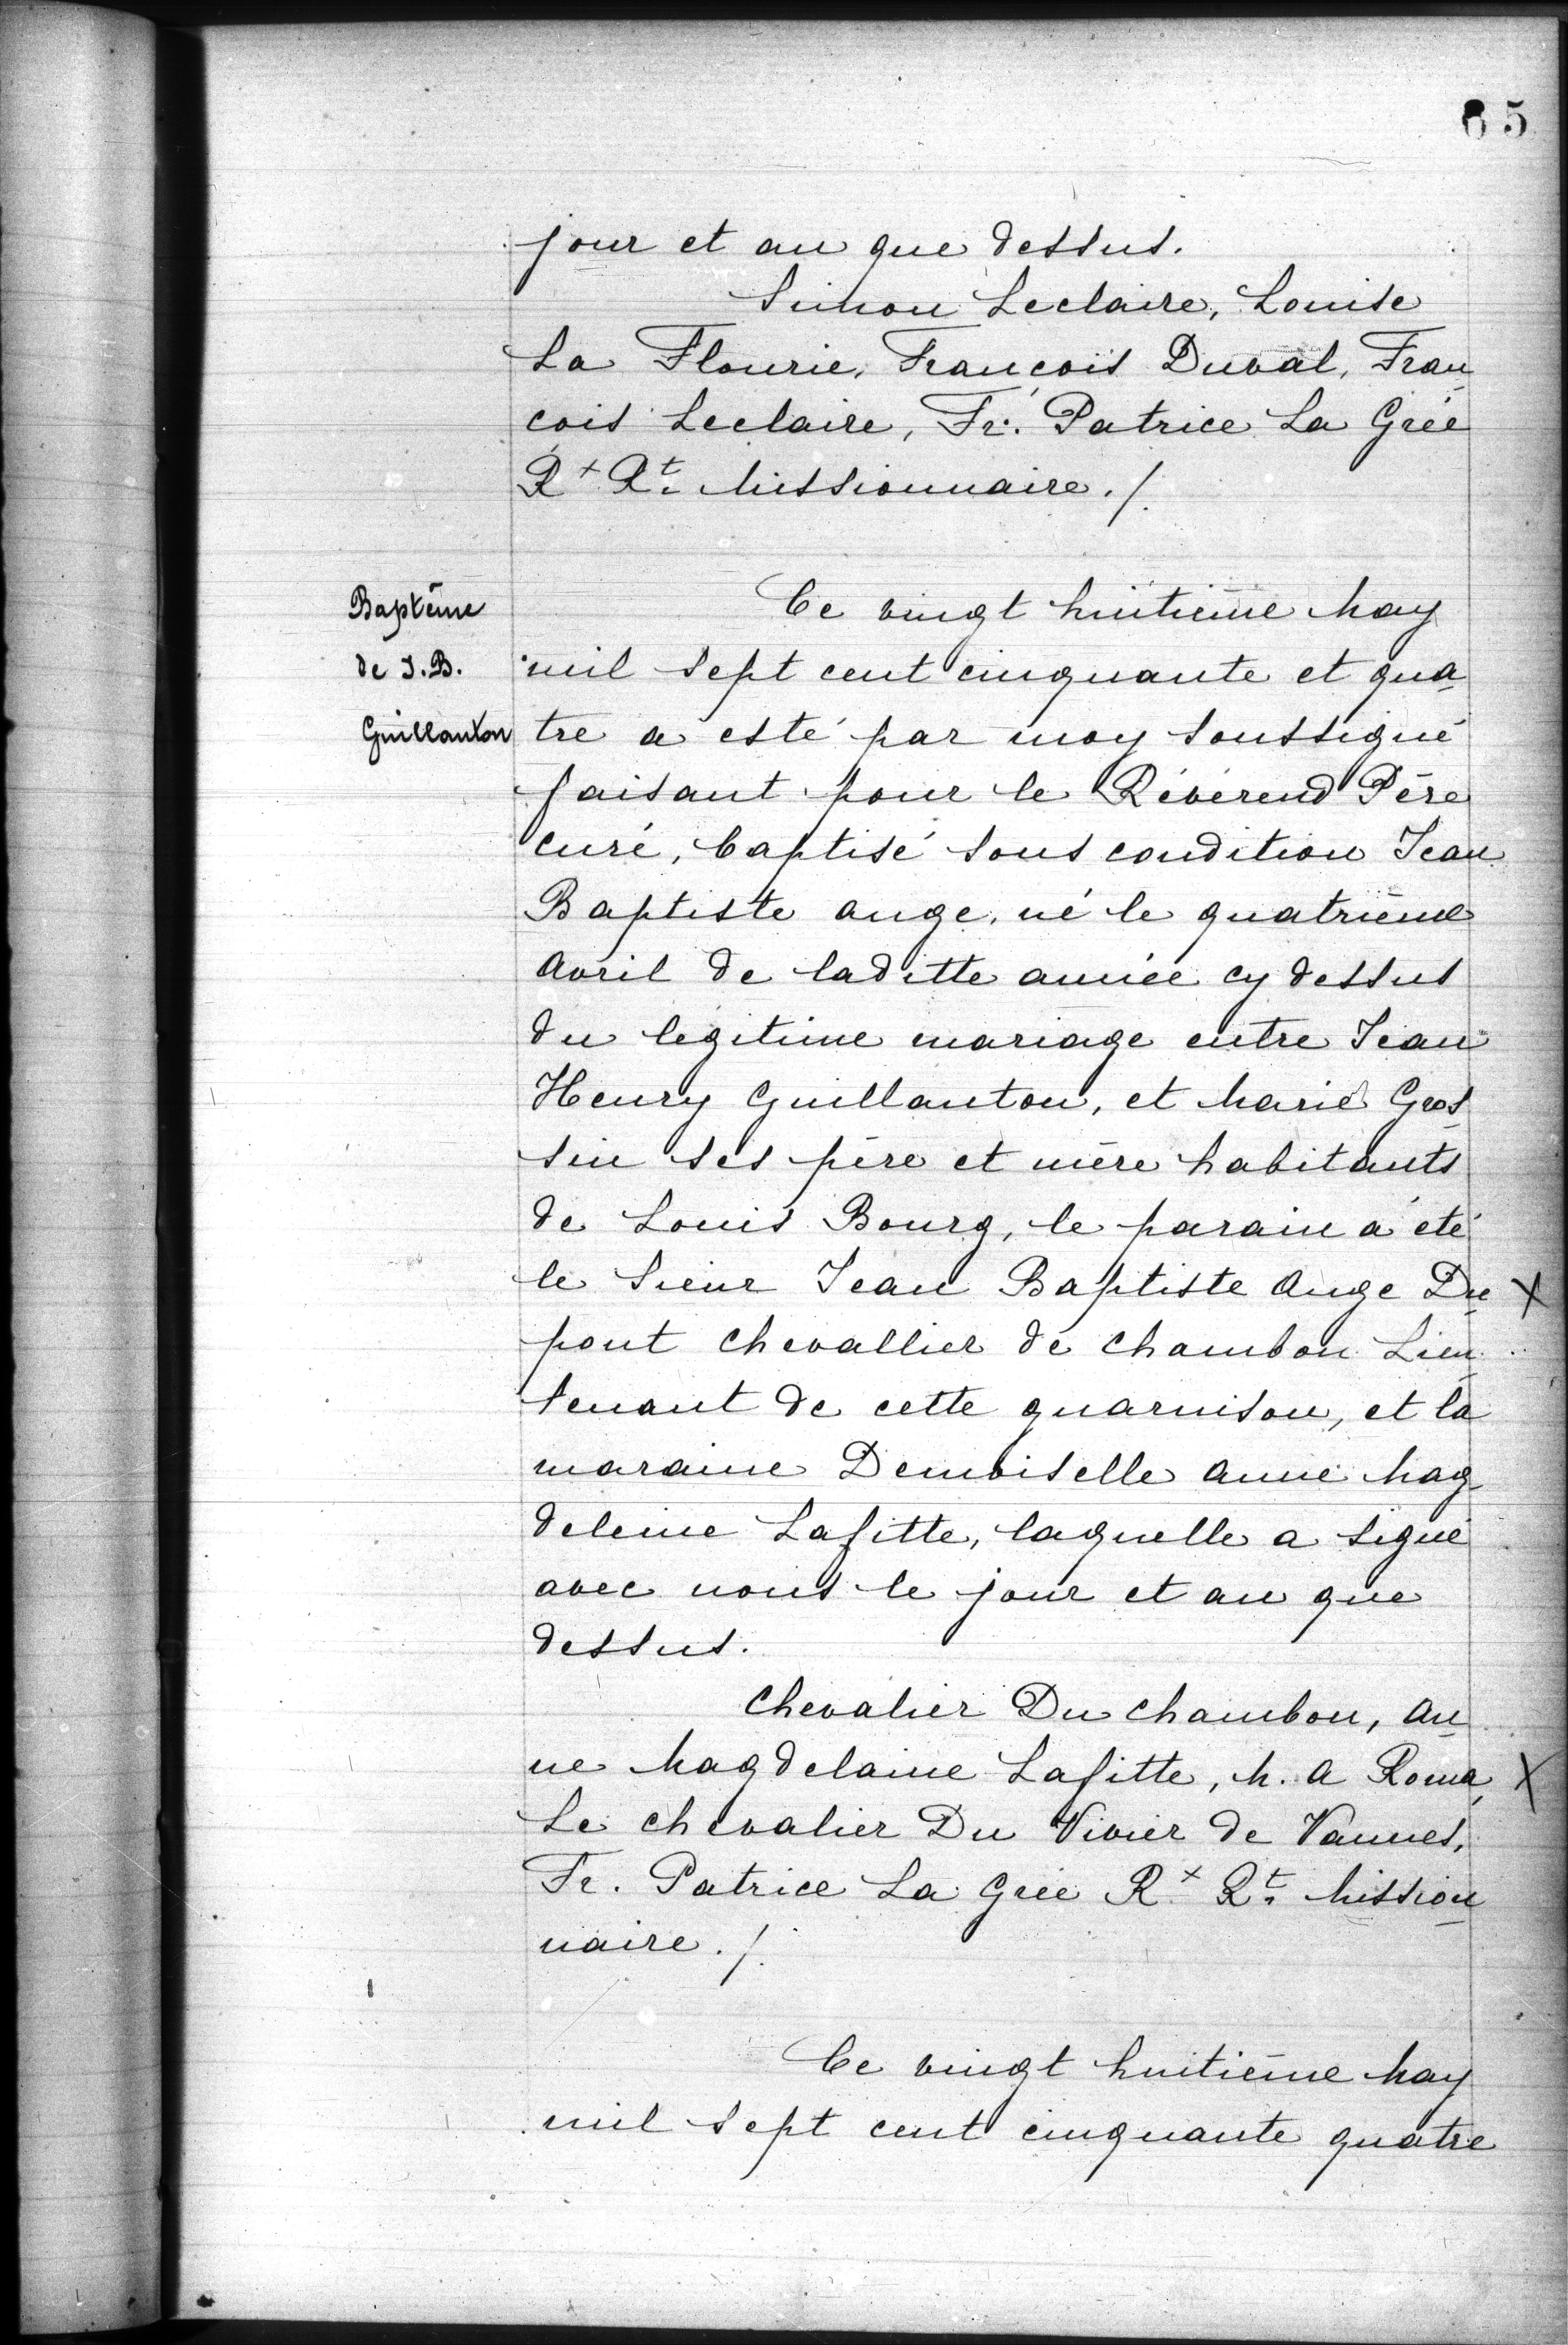 65
jour et an que dessus.
Simon Leclaire, Louise
La Flourie, François Duval, Fran
çois Leclaire, Fr. Patrice La Grée
Rx Rt. Missionnaire ./.
Baptême
de J.B.
Guillanton
Ce vingt huitième May
mil sept cent cinquante et qua
tre a esté par moy soussigné
faisant pour le Révérend Père
curé, baptisé sous condition Jean
Baptiste ange, né le quatrième
avril de laditte année cy dessus
du legitime mariage entre Jean
Henry Guillanton, et Marie Gros
sin ses père et mère habitants
de Louis Bourg, le parain a été
le Sieur Jean Baptiste Ange Du X
pont chevallier de chambon Lieu
tenant de cette guarnison, et la
maraine Demoiselle anne Mag
deleine Lafitte, laquelle a signé
avec nous le jour et an que
dessus.
Chevalier Du chambon, An
ne Magdelaine Lafitte, M. A Roma, X
Le chevalier Du Vivier de Vannes,
Fr. Patrice La Grée Rx Rt. Mission
naire ./.
Ce vingt huitième May
mil sept cent cinquante quatre